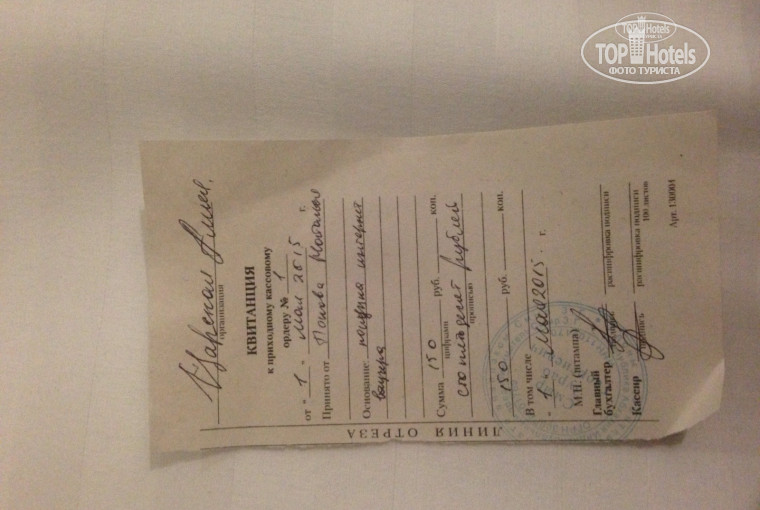 TOP Hotels
ФОТО ТУРИСТА
Царская Аллея.
организация
КВИТАНЦИЯ
к приходному кассовому
ордеру № 1
от "1" мая 2015 г.
Принято от Попова Наталья
Основание: покупка интернет
ваучера
Сумма 150 руб. коп.
цифрами
сто пятьдесят рублей
прописью
150 руб. коп.
В том числе
"1" мая 2015. г.
М.П. (штампа)
Главный
бухгалтер
подпись расшифровка подписи
Кассир
подпись расшифровка подписи
100 листов
Арт. 130004
ЛИНИЯ ОТРЕЗА